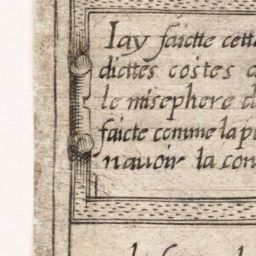 Iay faictte cette
dicttes costes
le misephere d
faicte comme la p
nauoir la con